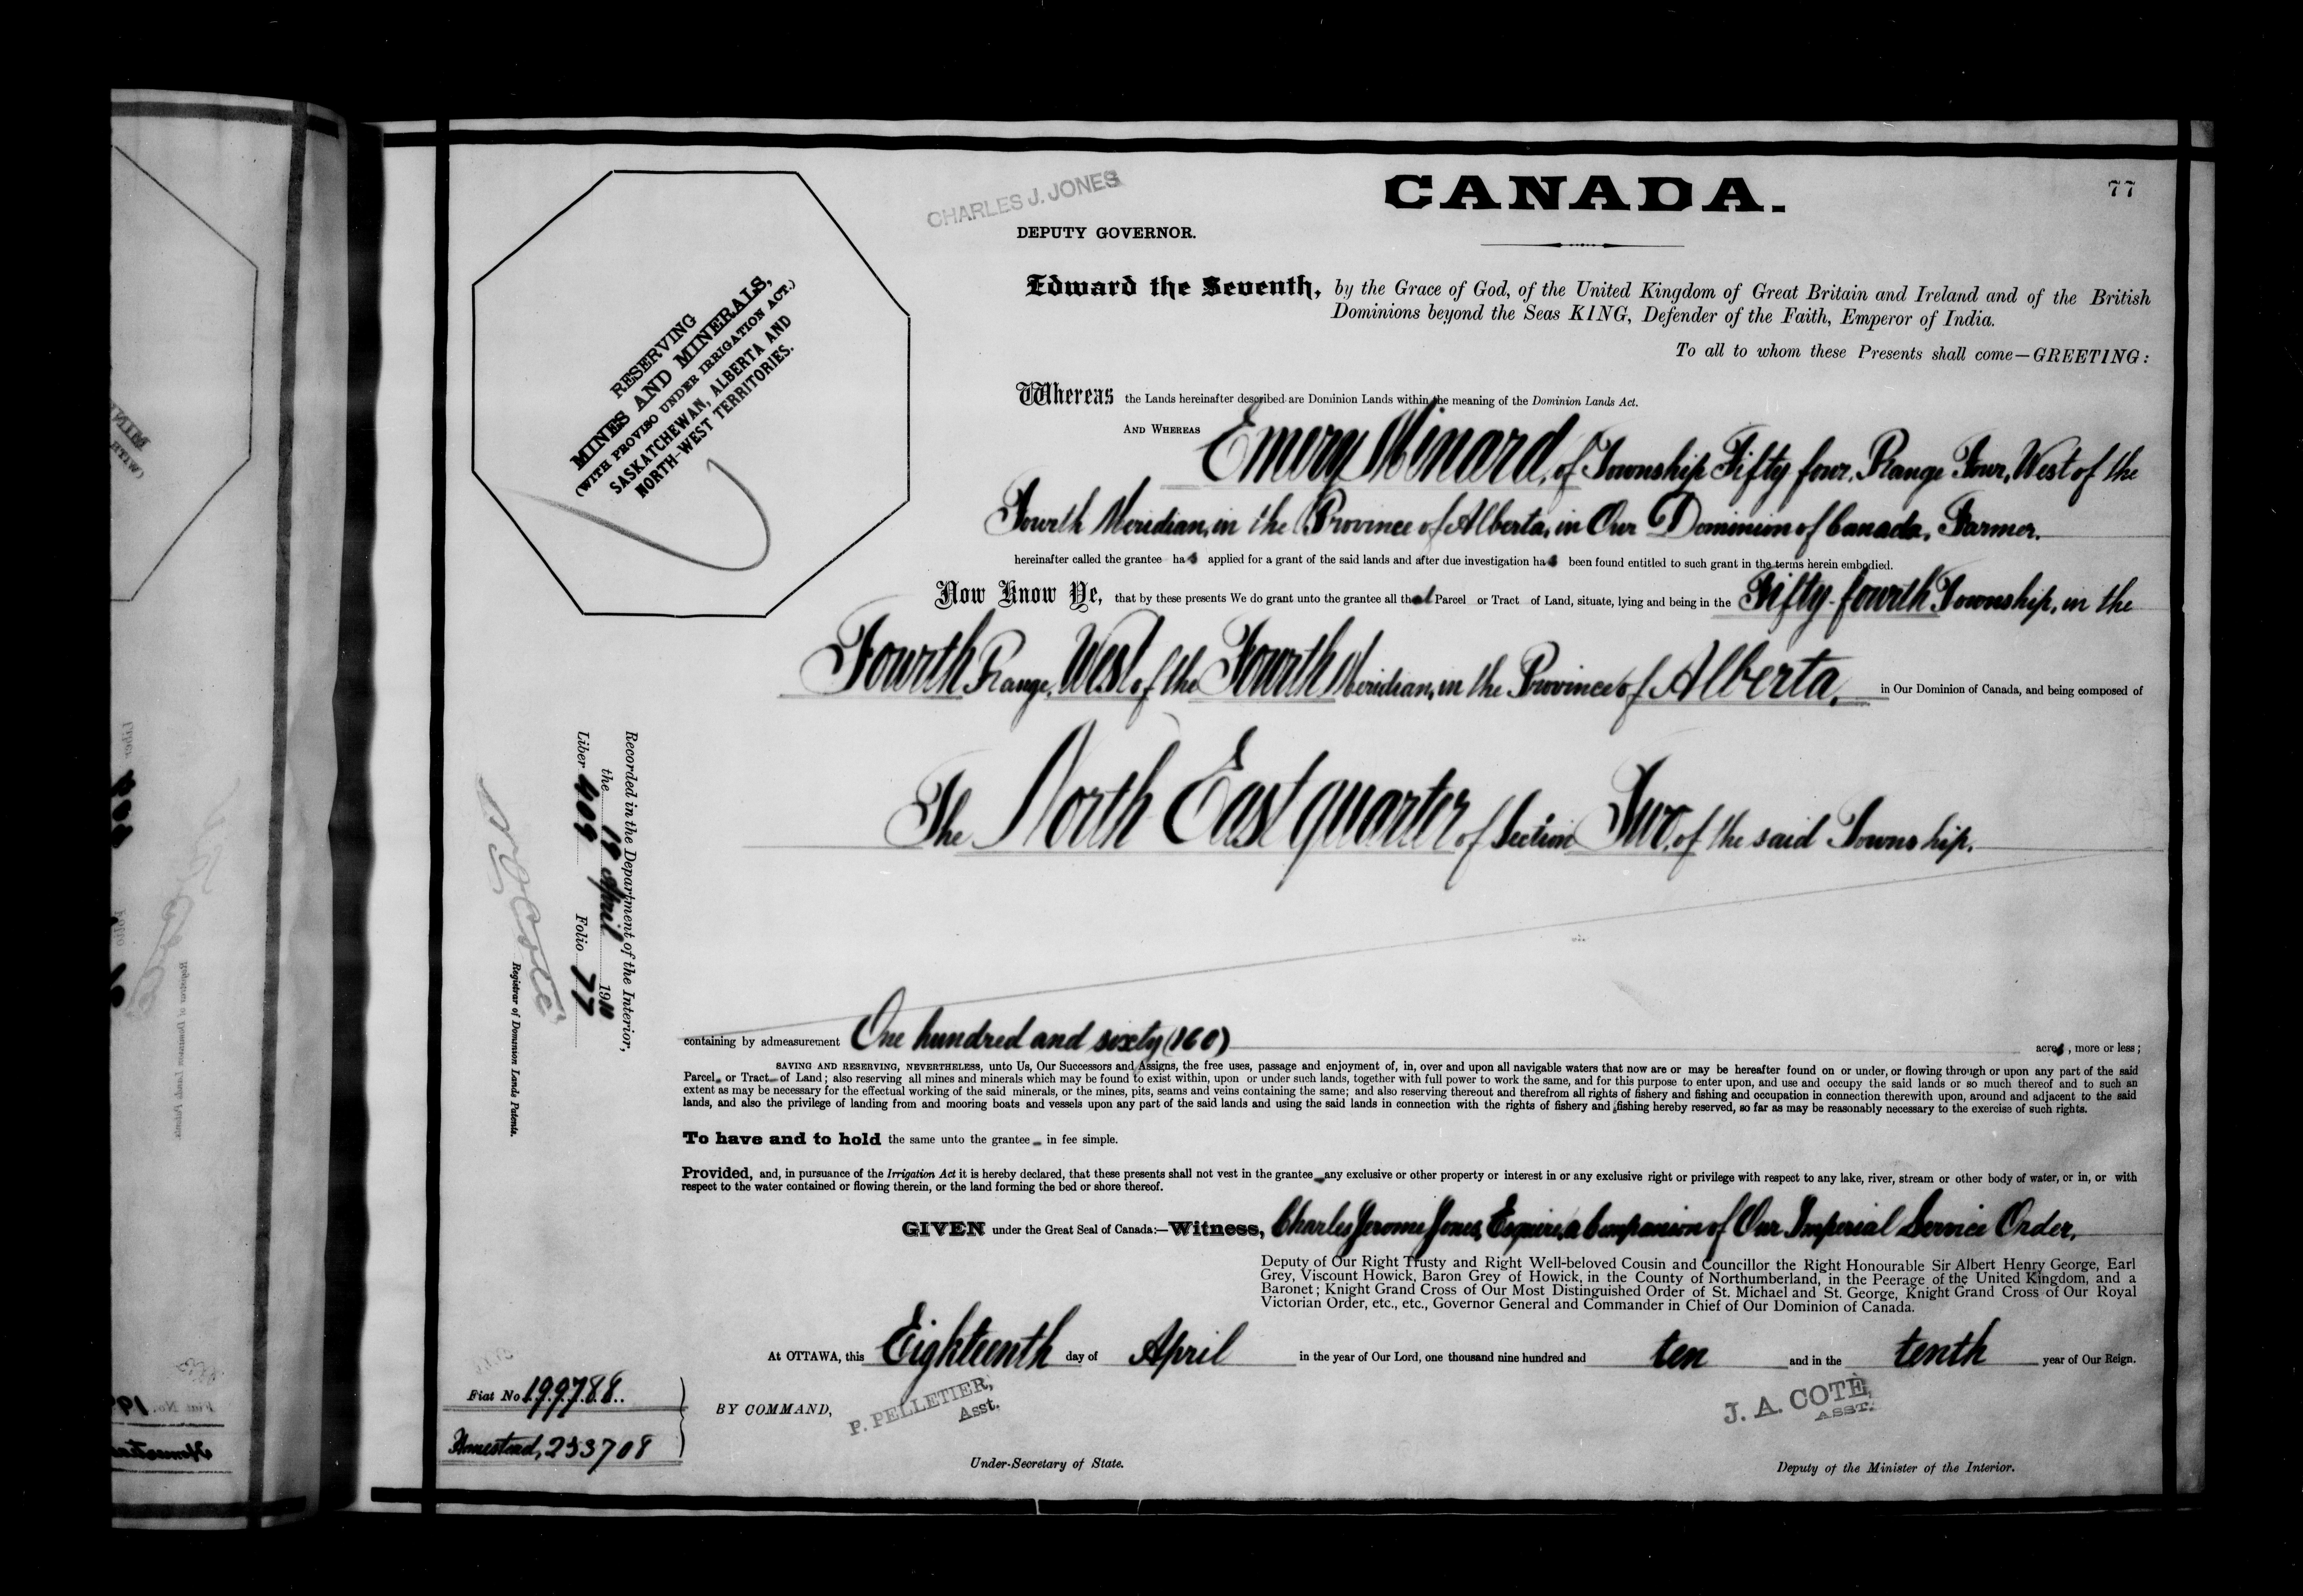 77
CANADA.
CHARLES J. JONES
DEPUTY GOVERNOR.
RESERVING
MINES AND MINERALS,
(WITH PROVISO UNDER IRRIGATION ACT.)
SASKATCHEWAN, ALBERTA AND
NORTH-WEST TERRITORIES.
Edward the Seventh, by the Grace of God, of the United Kingdom of Great Britain and Ireland and of the British
Dominions beyond the Seas KING, Defender of the Faith, Emperor of India.
To all to whom these Presents shall come—GREETING:
Whereas the Lands hereinafter described are Dominion Lands within the meaning of the Dominion Lands Act.
AND WHEREAS Emery Minard, of Township Fifty four, Range Four, West of the
Fourth Meridian, in the Province of Alberta, in Our Dominion of Canada, Farmer.
hereinafter called the grantee has applied for a grant of the said lands and after due investigation has been found entitled to such grant in the terms herein embodied.
Now Know Ye, that by these presents We do grant unto the grantee all that Parcel or Tract of Land, situate, lying and being in the Fifty-fourth Township, in the
Fourth Range, West of the Fourth Meridian, in the Province of Alberta, in Our Dominion of Canada, and being composed of
The North East quarter of Section Two, of the said Township.
containing by admeasurement One hundred and sixty (160) acres, more or less;
SAVING AND RESERVING, NEVERTHELESS, unto Us, Our Successors and Assigns, the free uses, passage and enjoyment of, in, over and upon all navigable waters that now are or may be hereafter found on or under, or flowing through or upon any part of the said
Parcel or Tract of Land; also reserving all mines and minerals which may be found to exist within, upon or under such lands, together with full power to work the same, and for this purpose to enter upon, and use and occupy the said lands or so much thereof and to such an
extent as may be necessary for the effectual working of the said minerals, or the mines, pits, seams and veins containing the same; and also reserving thereout and therefrom all rights of fishery and fishing and occupation in connection therewith upon, around and adjacent to the said
lands, and also the privilege of landing from and mooring boats and vessels upon any part of the said lands and using the said lands in connection with the rights of fishery and fishing hereby reserved, so far as may be reasonably necessary to the exercise of such rights.
To have and to hold the same unto the grantee in fee simple.
Provided, and, in pursuance of the Irrigation Act it is hereby declared, that these presents shall not vest in the grantee any exclusive or other property or interest in or any exclusive right or privilege with respect to any lake, river, stream or other body of water, or in, or with
respect to the water contained or flowing therein, or the land forming the bed or shore thereof.
GIVEN under the Great Seal of Canada:—Witness, Charles Jerome Jones, Esquire, a Companion of Our Imperial Service Order,
Deputy of Our Right Trusty and Right Well-beloved Cousin and Councillor the Right Honourable Sir Albert Henry George, Earl
Grey, Viscount Howick, Baron Grey of Howick, in the County of Northumberland, in the Peerage of the United Kingdom, and a
Baronet; Knight Grand Cross of Our Most Distinguished Order of St. Michael and St. George, Knight Grand Cross of Our Royal
Victorian Order, etc., etc., Governor General and Commander in Chief of Our Dominion of Canada.
At OTTAWA, this Eighteenth day of April in the year of Our Lord, one thousand nine hundred and ten and in the tenth year of Our Reign.
BY COMMAND,
P. PELLETIER,
Asst.
Under-Secretary of State.
J. A. COTÉ,
ASST.
Deputy of the Minister of the Interior.
Recorded in the Department of the Interior,
the 19 April 1910
Liber 409 Folio 77
Registrar of Dominion Lands Patents.
Fiat No 199788
Homestead, 253708